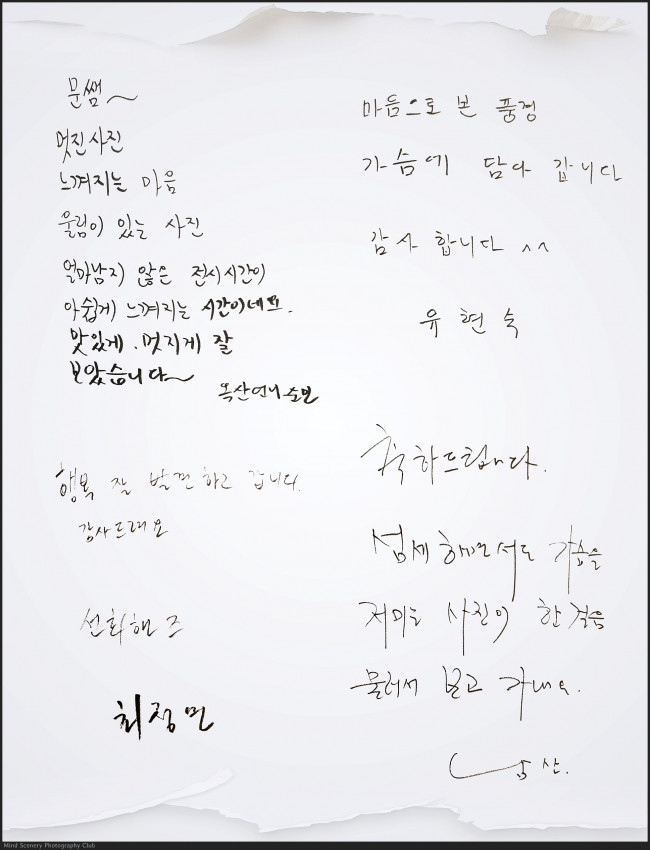 문쌤~
멋진사진
느껴지는 마음
울림이 있는 사진
얼마남지 않은 전시시간이
아쉽게 느껴지는 시간이네요.
맛있게. 멋지게 잘
보았습니다~
옥산언니
행복 잘 발견하고 갑니다.
감사드려요
선희해즈
최정민
마음으로 본 풍경
가슴에 담다 갑니다
감사 합니다 ^^
유현숙
축하드립니다.
섬세해면서도 가슴을
저미는 사진이 한걸음
물러서 보고 가네요.
남산.
Mind Scenery Photography Club